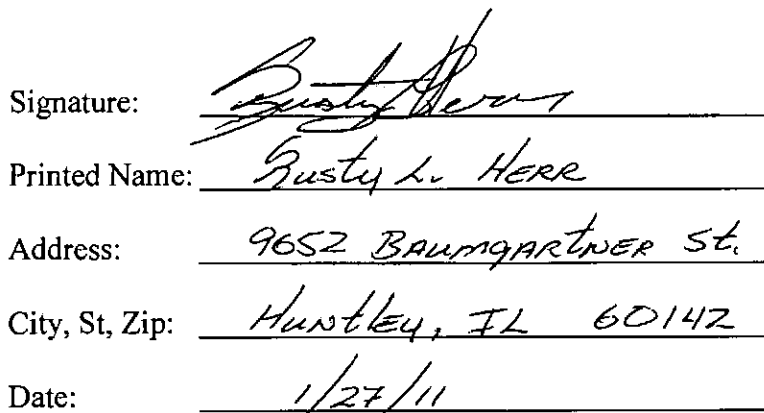 Signature: Rusty Herr
Printed Name: Rusty L. HERR
Address: 9652 BAUMGARTNER St.
City, St, Zip: Huntley, IL 60142
Date: 1/27/11